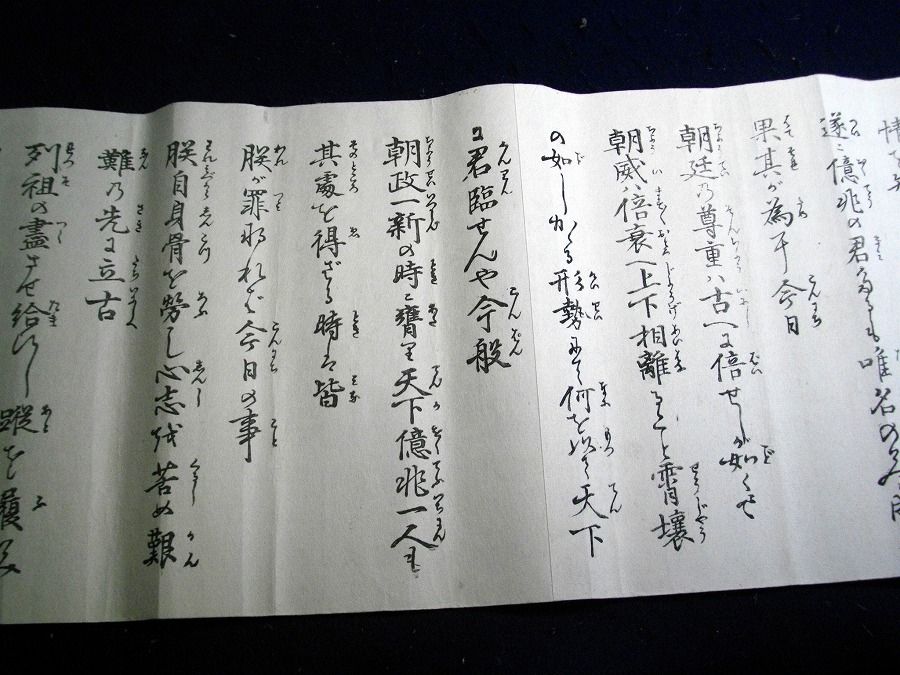 遂ニ億兆の君たるも唯名のみに成
果其が為ニ今日
朝廷の尊重ハ古へに倍せしが如くにて
朝威ハ倍衰へ上下相離るゝこと霄壌
の如しかゝる形勢にて何を以て天下
に君臨せんや今般
朝政一新の時ニ膺り天下億兆一人も
其處を得ざる時は皆
朕が罪なれば今日の事
朕自身骨を勞し心志を苦め艱
難の先に立古
列祖の盡させ給ひし蹤を履み